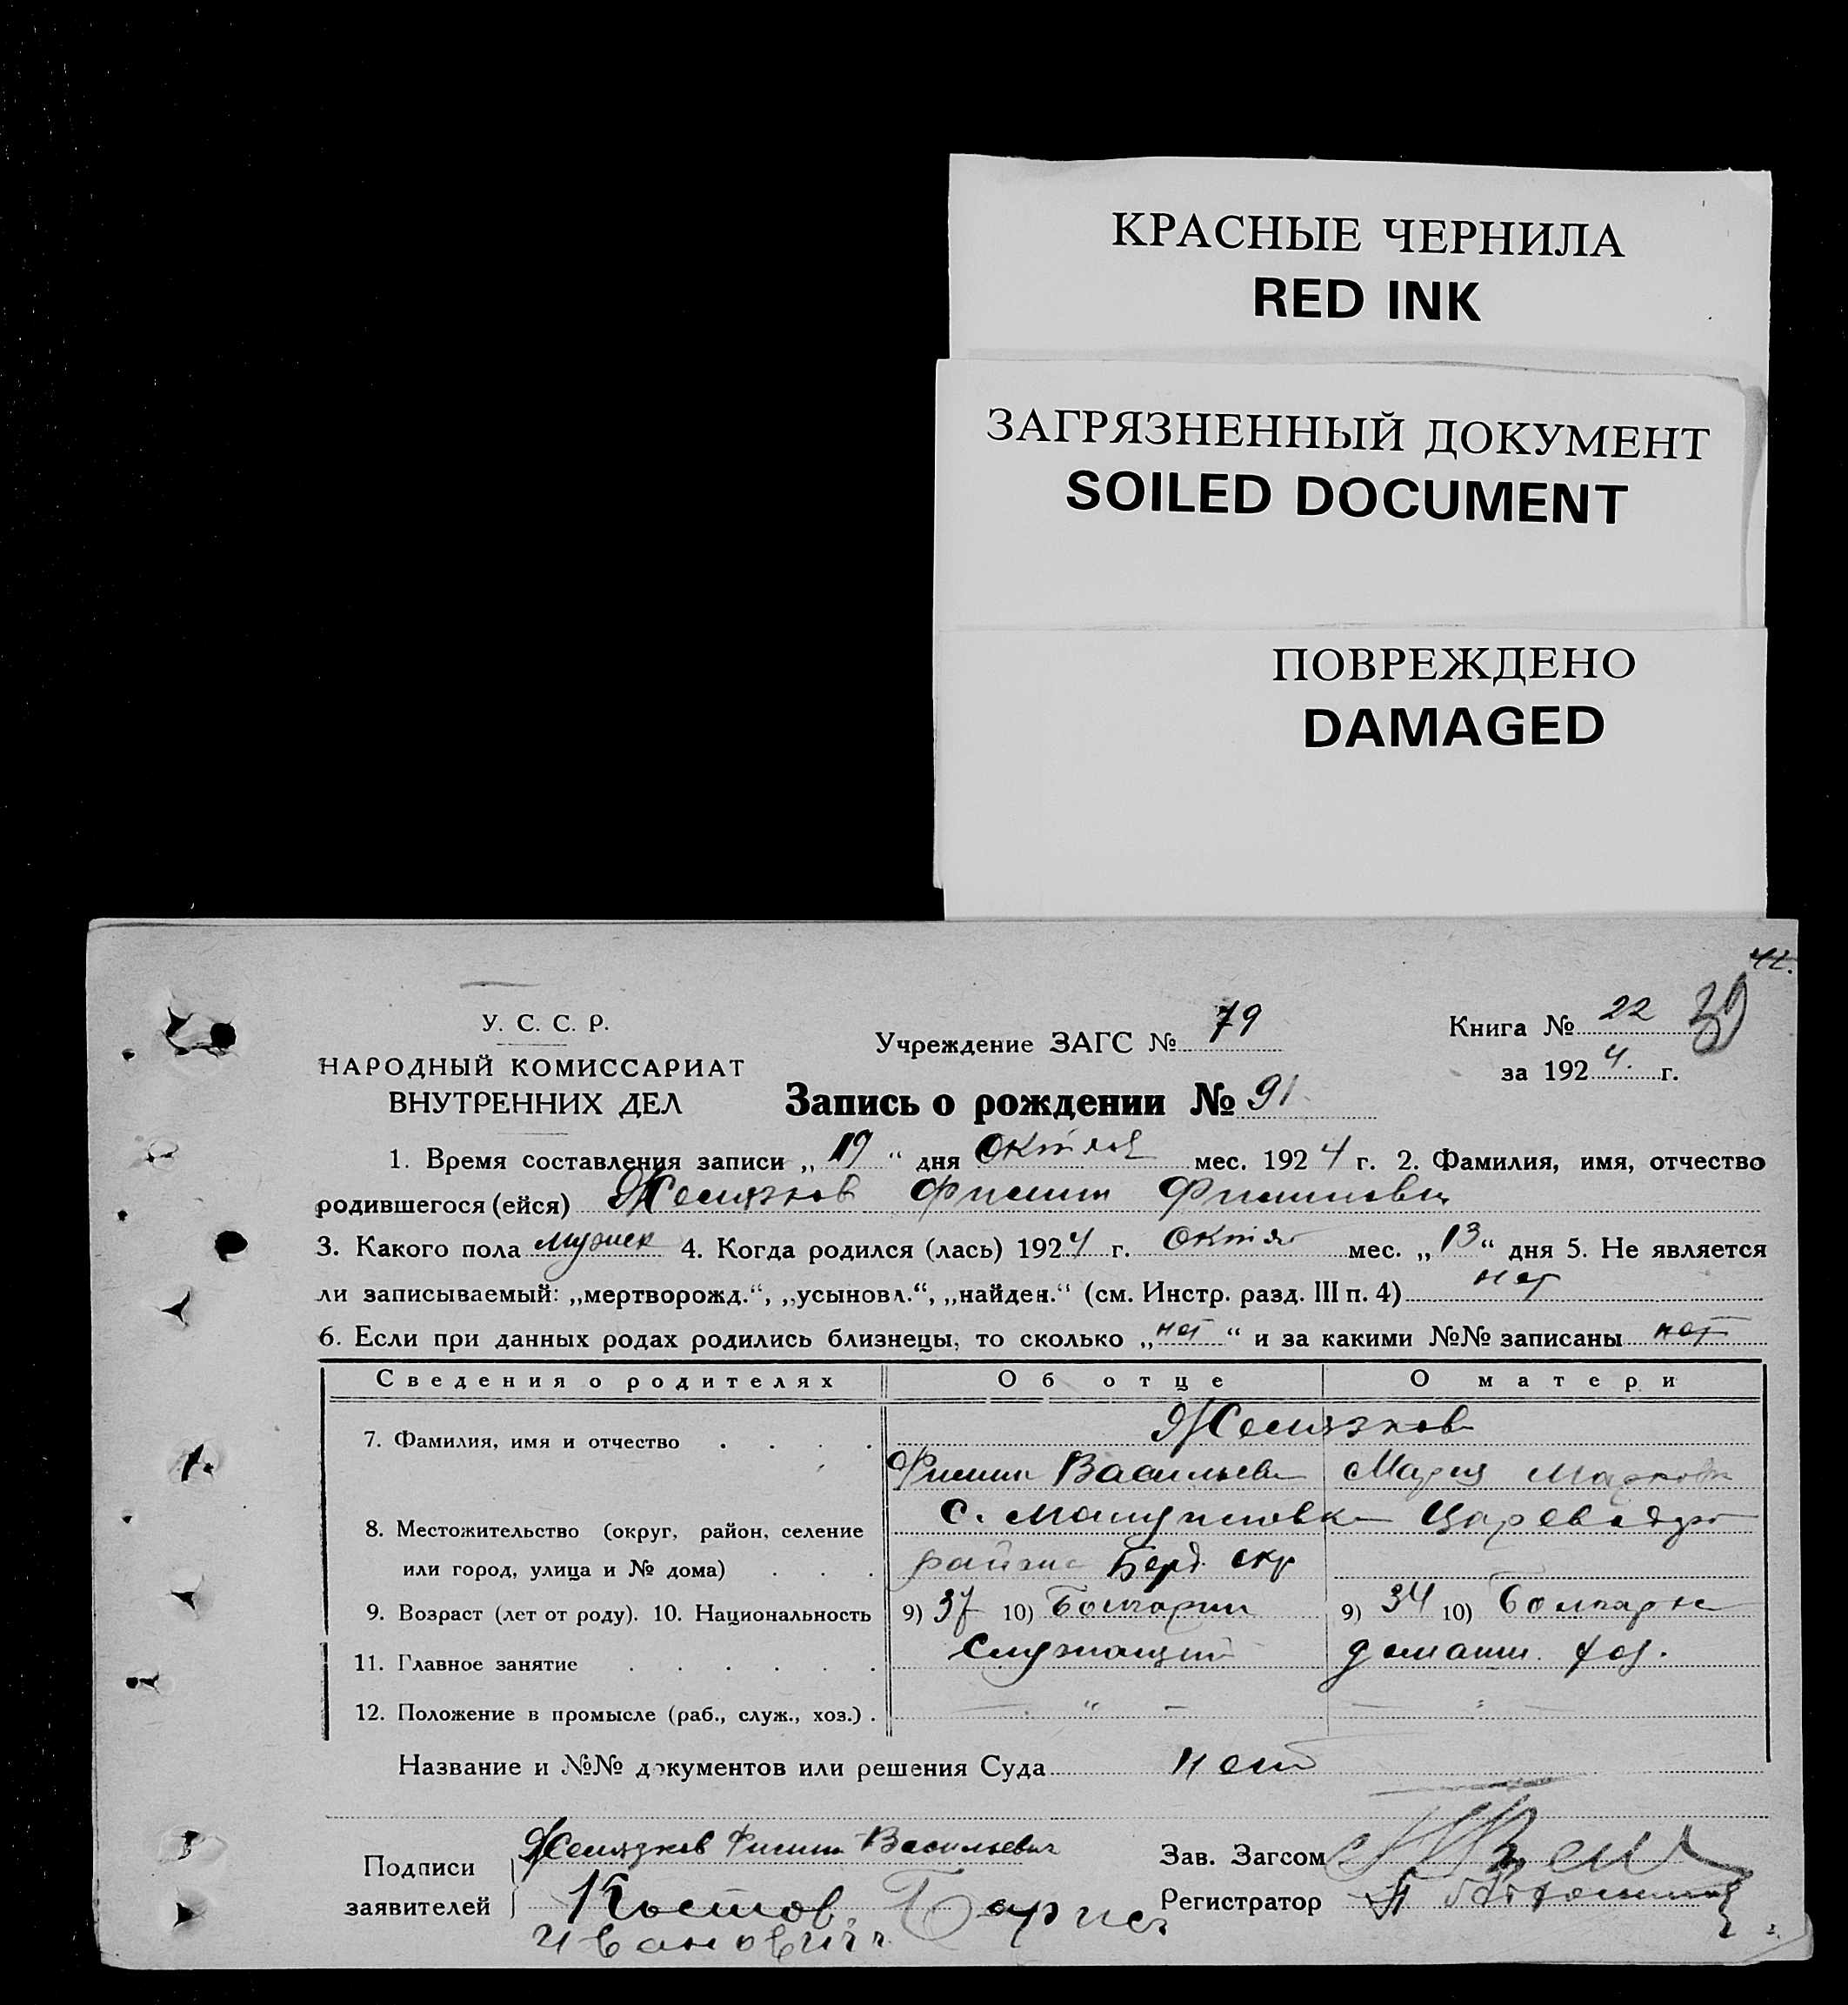 КРАСНЫЕ ЧЕРНИЛА
RED INK
ЗАГРЯЗНЕННЫЙ ДОКУМЕНТ
SOILED DOCUMENT
ПОВРЕЖДЕНО
DAMAGED
У. С. С. Р.
НАРОДНЫЙ КОМИССАРИАТ
ВНУТРЕННИХ ДЕЛ
Учреждение ЗАГС № 79
Книга № 22 39
за 1924 г.
Запись о рождении № 91
1. Время составления записи „19“ дня Октяб мес. 1924 г. 2. Фамилия, имя, отчество
родившегося (ейся) Желязков Филип Филипови
3. Какого пола мужск 4. Когда родился (лась) 1924 г. Октяб мес. „13“ дня 5. Не является
ли записываемый: „мертворожд.“, „усыновл.“, „найден.“ (см. Инстр. разд. III п. 4) нет
6. Если при данных родах родились близнецы, то сколько „нет“ и за какими №№ записаны нет
Сведения о родителях Об отце О матери
7. Фамилия, имя и отчество Желязков
Филип Васильеви Мария Марковн
8. Местожительство (округ, район, селение С. Цареводар
или город, улица и № дома) района Берд. окр
9. Возраст (лет от роду). 10. Национальность 9) 37 10) Болгарин 9) 34 10) Болгарка
11. Главное занятие Служащий домашн. хоз.
12. Положение в промысле (раб., служ., хоз.) — „ — — „ —
Название и №№ документов или решения Суда нет
Подписи заявителей Желязков Филип Васильевич
Костов Борис
Иванович
Зав. Загсом
Регистратор